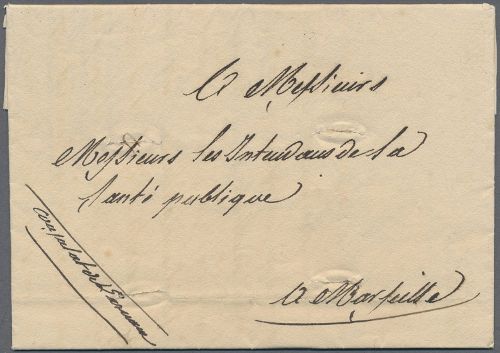 A Messieurs
Messieurs les Intendans de la
Santé publique
A Marseille